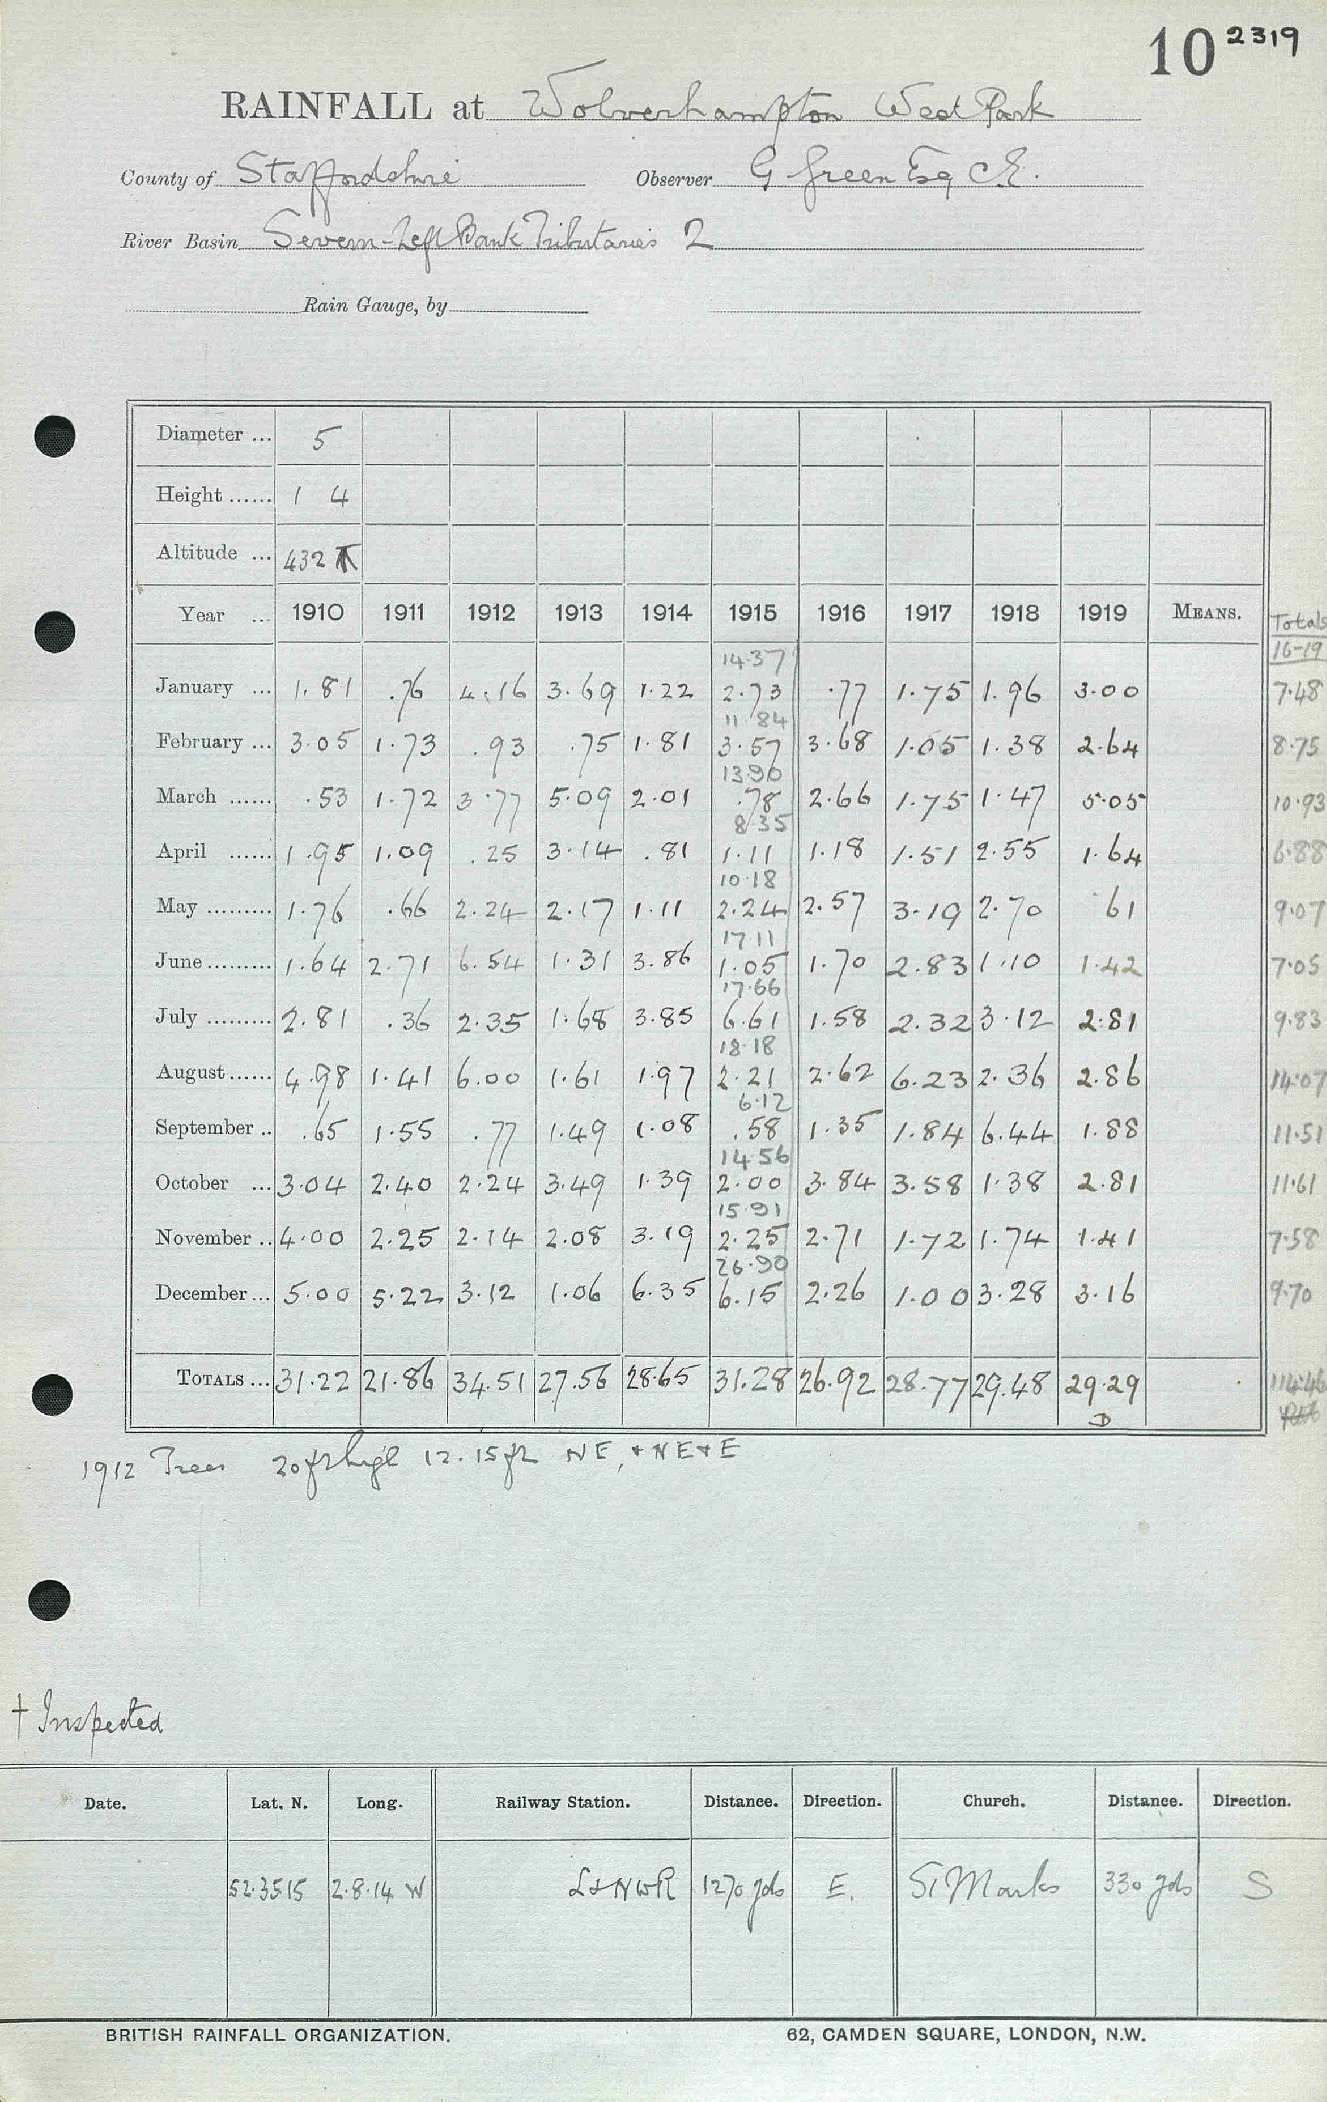 10 2319
RAINFALL at Wolverhampton West Park
County of Staffordshire Observer G Green Esq C.E.
River Basin Severn-Left Bank Tributaries 2
Rain Gauge, by
Diameter ... 5
Height ...... 1 4
Altitude ... 432
Year ... 1910 1911 1912 1913 1914 1915 1916 1917 1918 1919 MEANS. Totals
16-19
14.37
January ... 1.81 .76 4.16 3.69 1.22 2.73 .77 1.75 1.96 3.00 7.48
11.84
February ... 3.05 1.73 .93 .75 1.81 3.57 3.68 1.05 1.38 2.64 8.75
13.90
March ...... .53 1.72 3.77 5.09 2.01 .78 2.66 1.75 1.47 5.05 10.93
8.35
April ...... 1.95 1.09 .25 3.14 .81 1.11 1.18 1.51 2.55 1.64 6.88
10.18
May ......... 1.76 .66 2.24 2.17 1.11 2.24 2.57 3.19 2.70 .61 9.07
17.11
June ......... 1.64 2.71 6.54 1.31 3.86 1.05 1.70 2.83 1.10 1.42 7.05
17.66
July ......... 2.81 .36 2.35 1.68 3.85 6.61 1.58 2.32 3.12 2.81 9.83
18.18
August ...... 4.98 1.41 6.00 1.61 1.97 2.21 2.62 6.23 2.36 2.86 14.07
6.12
September .. .65 1.55 .77 1.49 1.08 .58 1.35 1.84 6.44 1.88 11.51
14.56
October ... 3.04 2.40 2.24 3.49 1.39 2.00 3.84 3.58 1.38 2.81 11.61
15.91
November .. 4.00 2.25 2.14 2.08 3.19 2.25 2.71 1.72 1.74 1.41 7.58
26.90
December ... 5.00 5.22 3.12 1.06 6.35 6.15 2.26 1.00 3.28 3.16 9.70
TOTALS ... 31.22 21.86 34.51 27.56 28.65 31.28 26.92 28.77 29.48 29.29 114.46
D
1912 Trees 20ft high 12.15ft NE, + NE+E
† Inspected
Date. Lat. N. Long. Railway Station. Distance. Direction. Church. Distance. Direction.
52.35.15 2.8.14 W L+NWR 1270 yds E. St Marks 330 yds S
BRITISH RAINFALL ORGANIZATION. 62, CAMDEN SQUARE, LONDON, N.W.